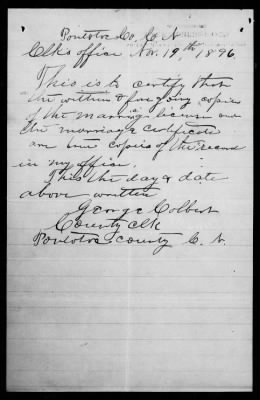 Pontotoc Co, C. N
Clks office Nov. 19th 1896
This is to certify that
the within & forgoing copies
of the marriage license and
the marriage certificate
are true copies of the record
in my office.
This the day & date
above written
George Colbert
County Clk
Pontotoc County C. N.